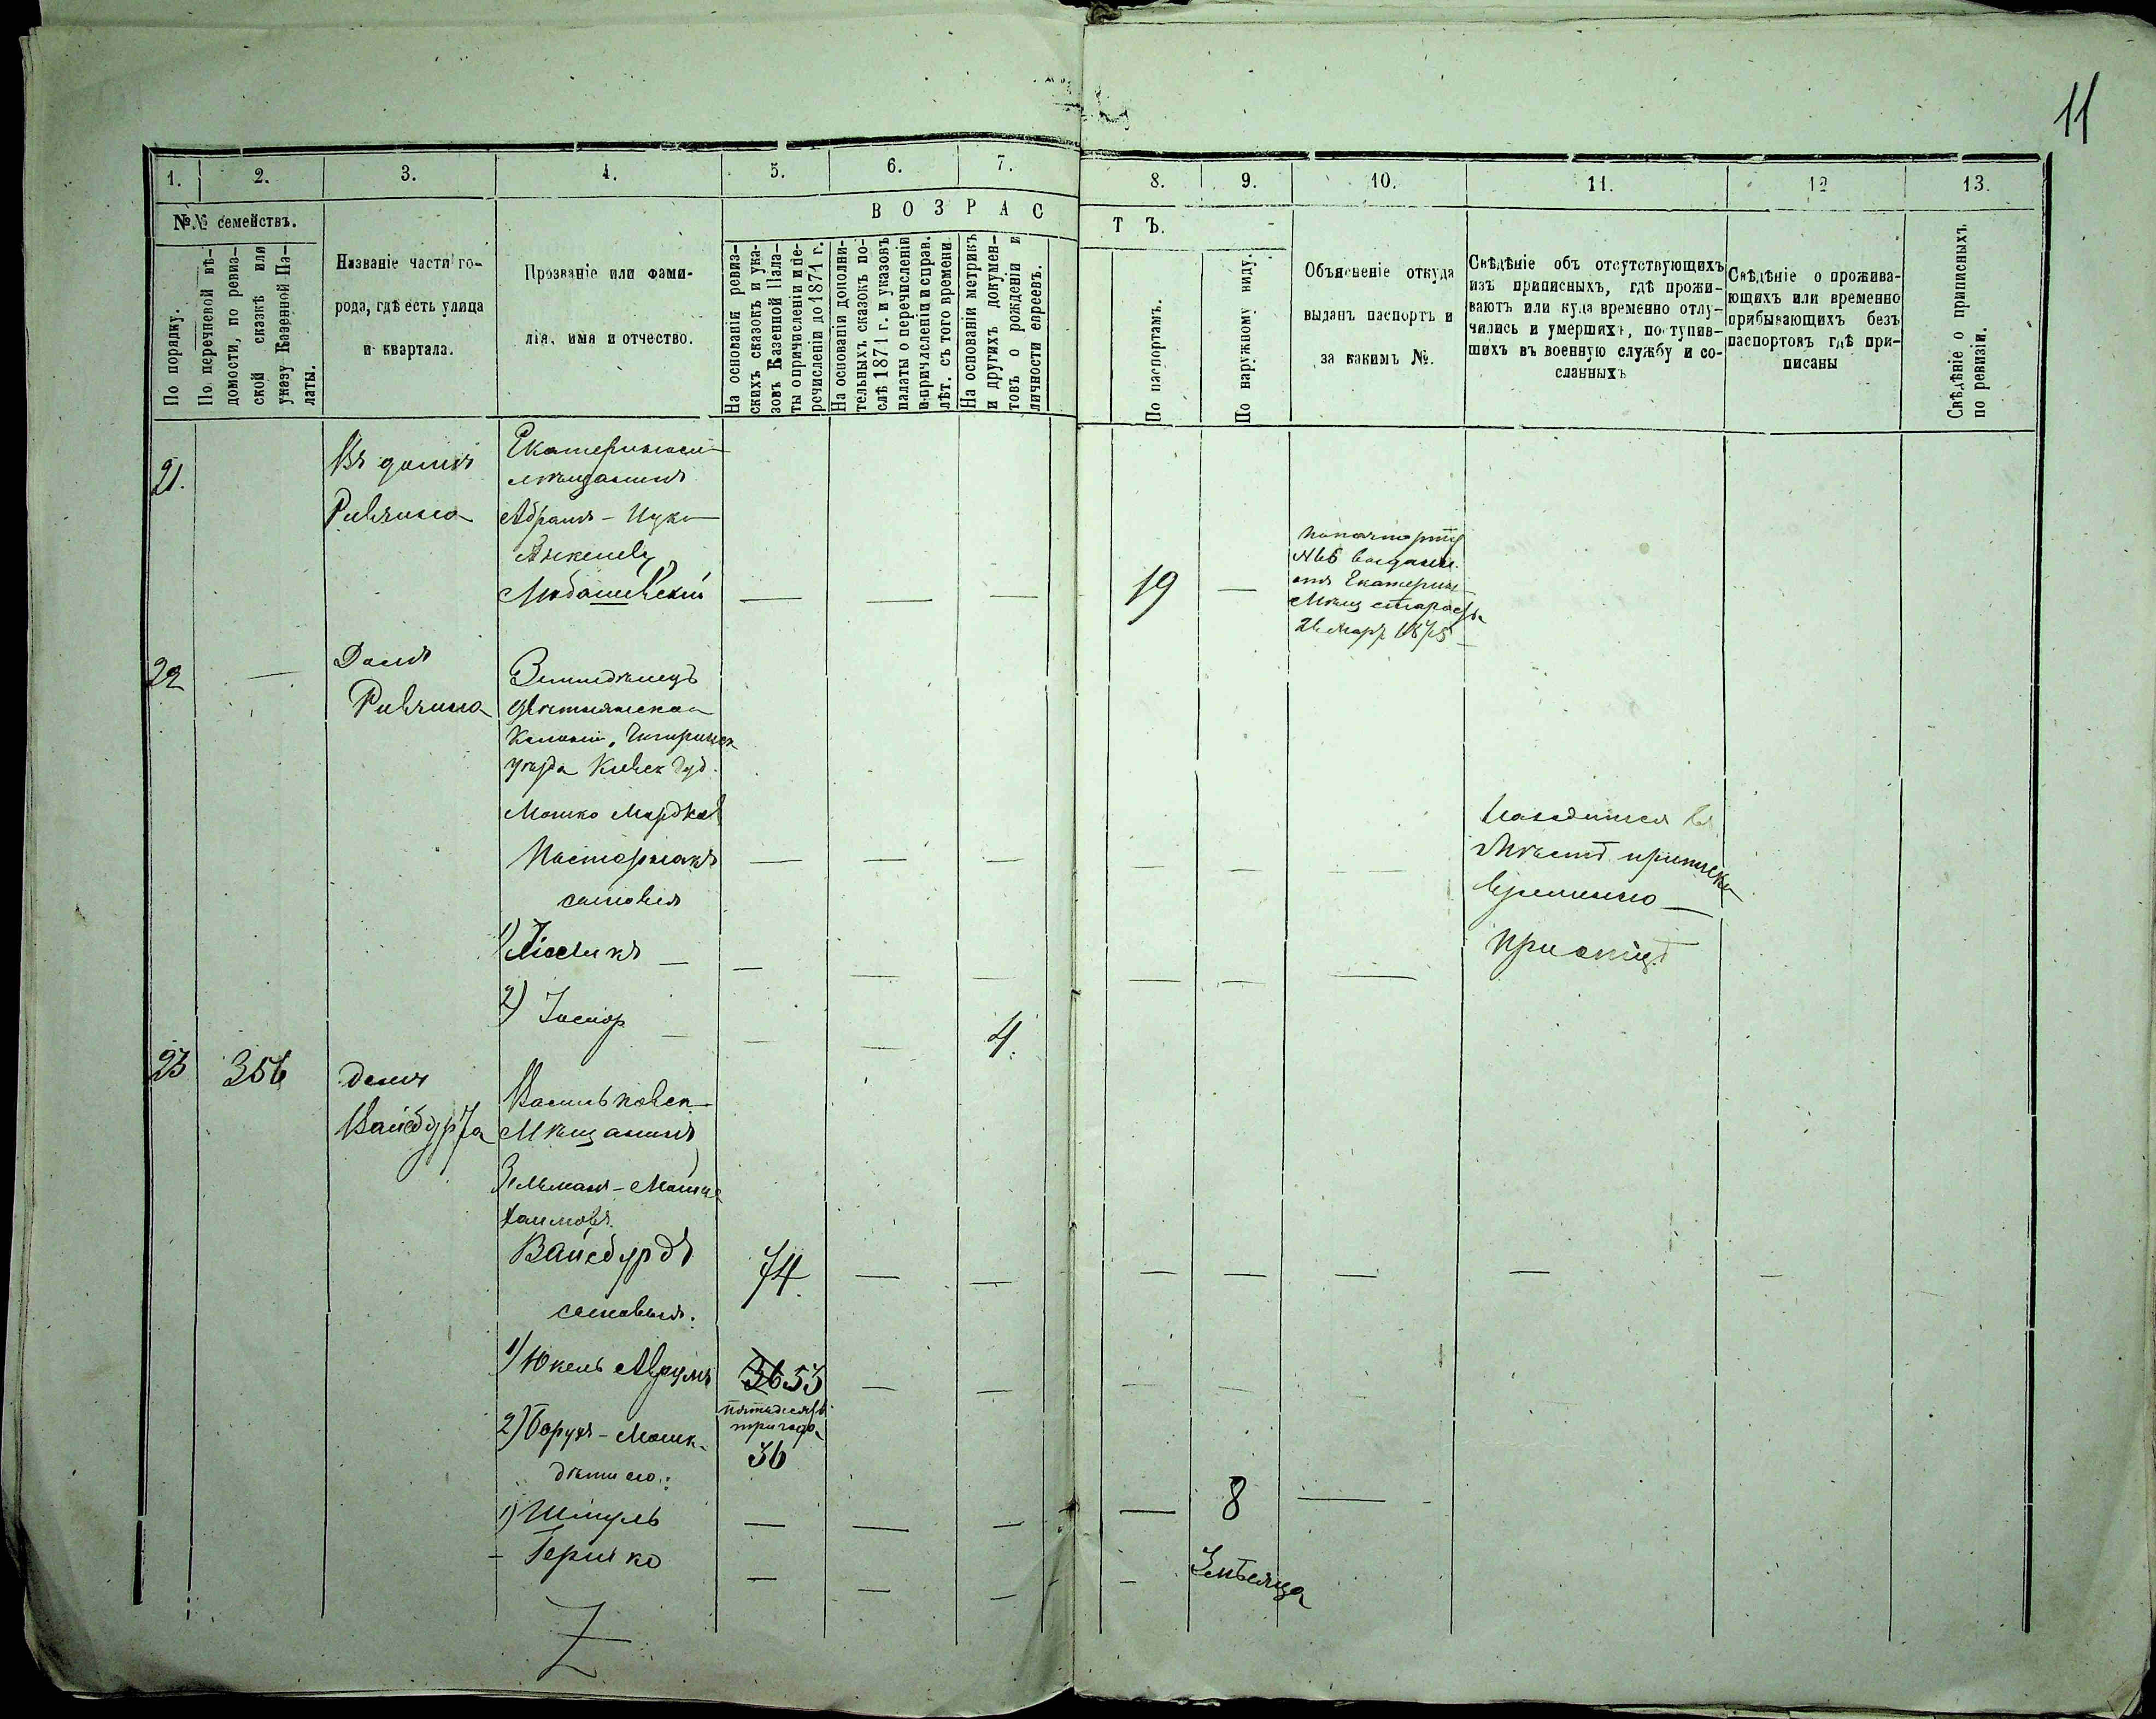 11
1. 2. 3. 4. 5. 6. 7. 8. 9. 10. 11. 12 13.
№№ семействъ.
По порядку.
По перечневой вѣ-
домости, по ревиз-
ской сказкѣ или
указу Казенной Па-
латы.
Названіе части го-
рода, гдѣ есть улица
и квартала.
Прозваніе или фами-
лія, имя и отчество.
ВОЗРАСТЪ.
На основаніи ревиз-
скихъ сказокъ и ука-
зовъ Казенной Пала-
ты о причисленіи и пе-
речисленіи до 1871 г.
На основаніи дополни-
тельныхъ сказокъ по-
слѣ 1871 г. и указовъ
палаты о перечисленіи
и причисленіи и справ.
лѣт. съ того времени
На основаніи метрикъ
и другихъ докумен-
товъ о рожденіи и
личности евреевъ.
По паспортамъ.
По наружному виду.
Объясненіе откуда
выданъ паспортъ и
за какимъ №.
Свѣдѣніе объ отсутствующихъ
изъ приписныхъ, гдѣ прожи-
ваютъ или куда временно отлу-
чились и умершихъ, поступив-
шихъ въ военную службу и со-
сланныхъ
Свѣдѣніе о прожива-
ющихъ или временно
прибывающихъ безъ
паспортовъ гдѣ при-
писаны
Свѣдѣніе о приписныхъ
по ревизіи.
21.
Въ домѣ
Ривкина
мѣщанинъ
Абрамъ - Ицко
Любашевскій
— — — 19 —
паспорту
выдан.
отъ Екатерин
Мѣщ старосты
1875
22 —
Домъ
Ривкина
Колоніи, Чигиринск
уѣзда Кіевск Губ.
Мошко Мордков
Пастернакъ
— — — — — —
сыновья
1)
2) Іосифъ — — — 4.
Находится въ
мѣстѣ приписки
временно
23 356
домъ
Вайсбурда
Васильковск
Мѣщанинъ
Зельманъ - Мошко
Хаимовъ
Вайсбурдъ 74 — — — — — — —
сыновья:
1) Юкель Аврумъ 36 53 — — — —
пятьдесятъ
три года
2) Борухъ - Мошк. 36
дѣти его:
1) Шмуль — — — — 8 —
- Гершко — — — —